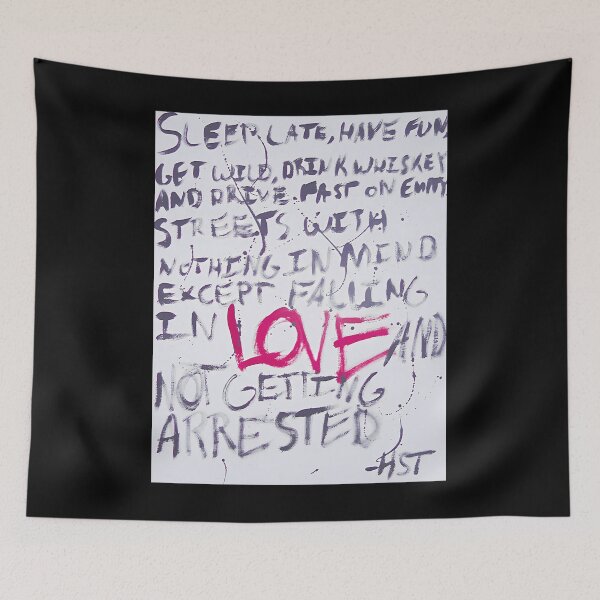 SLEEP LATE, HAVE FUN,
GET WILD, DRINK WHISKEY
AND DRIVE FAST ON EMPTY
STREETS WITH
NOTHING IN MIND
EXCEPT FALLING
IN LOVE AND
NOT GETTING
ARRESTED
-HST